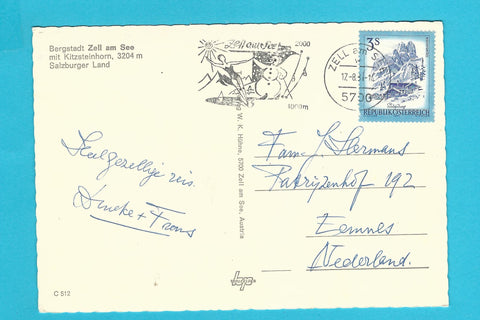 Bergstadt Zell am See
mit Kitzsteinhorn, 3204 m
Salzburger Land
Zell am See
2000
1000m
ZELL am SEE
5700
3S
REPUBLIK ÖSTERREICH
Verlag W. K. Hühne, 5700 Zell am See, Austria
Heel gezellige reis.
Dineke + Frans
Fam. J. Hermans
Patrijzenhof 192
Eemnes
Nederland.
C 512